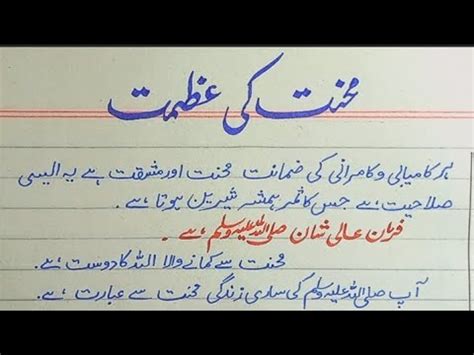 محنت کی عظمت
ہر کامیابی و کامرانی کی ضمانت محنت اور مشقت ہے یہ ایسی
صلاحیت ہے جس کا ثمر ہمیشہ شیریں ہوتا ہے۔
فرمان عالی شان صلی اللہ علیہ وسلم ہے۔
محنت سے کمانے والا اللہ کا دوست ہے۔
آپ صلی اللہ علیہ وسلم کی ساری زندگی محنت سے عبارت ہے۔